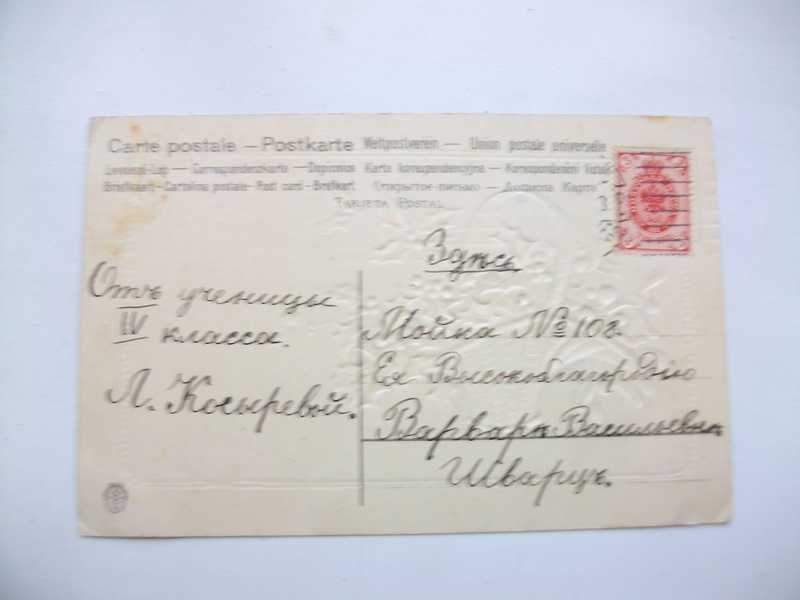 Carte postale — Postkarte Weltpostverein — Union postale universelle
Levelezö-Lap — Correspondenzkarte — Dopisnica Karta korespondencyjna — Korespondenční lístek
Briefkaart - Cartolina postale - Post card - Brefkort Открытое письмо — Дописна Карта
TARJETA POSTAL
Здѣсь
Отъ ученицы
IV класса.
Л. Косыревой.
Мойка № 108.
Ея Высокоблагородію
Варварѣ Васильевнѣ
Шварцъ.